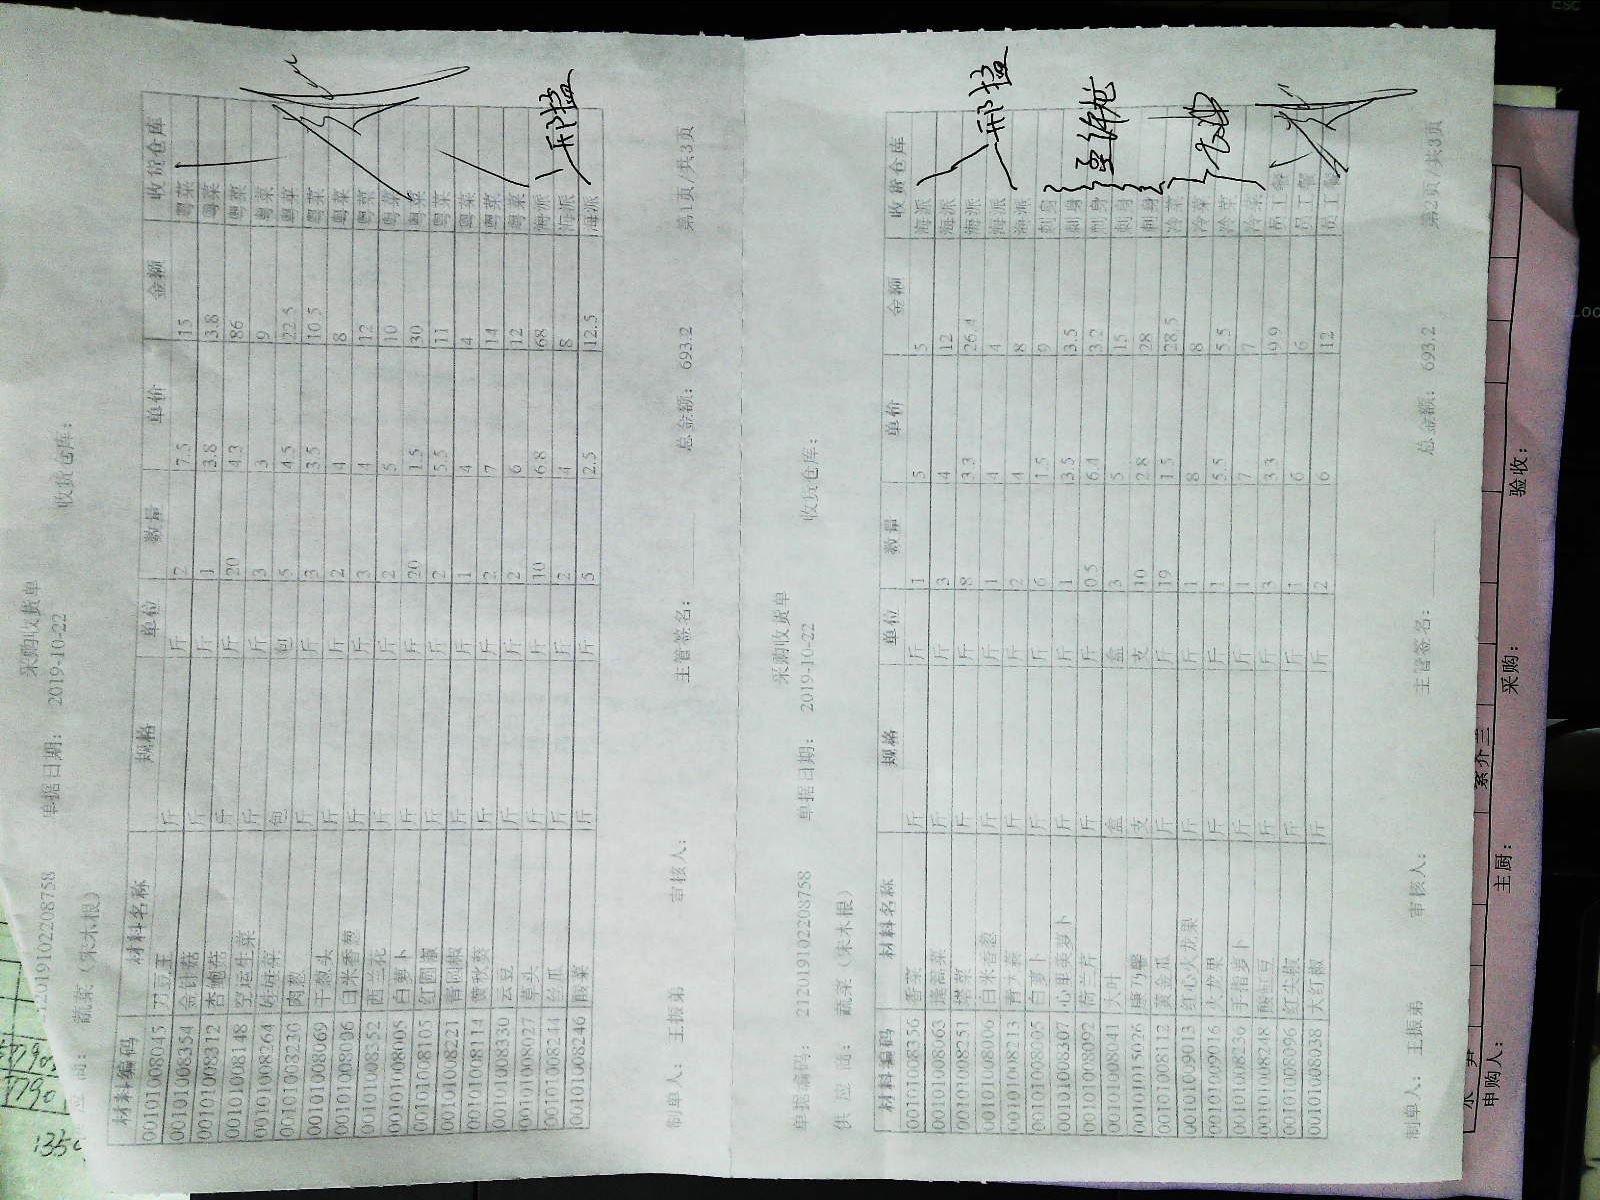 采购收货单
单据编码: 2120191022208758 单据日期: 2019-10-22 收货仓库:
供 应 商: 蔬菜（朱木根）
材料编码 材料名称 规格 单位 数量 单价 金额 收货仓库
00101008045 刀豆王 斤 斤 2 7.5 15 粤菜
00101008354 金针菇 斤 斤 1 3.8 3.8 粤菜
00101008312 杏鲍菇 斤 斤 20 4.3 86 粤菜
00101008148 空运生菜 斤 斤 3 3 9 粤菜
00101008264 包 包 5 4.5 22.5 粤菜
00101008230 肉葱 斤 斤 3 3.5 10.5 粤菜
00101008069 干葱头 斤 斤 2 4 8 粤菜
00101008006 白米香葱 斤 斤 3 4 12 粤菜
00101008352 西兰花 斤 斤 2 5 10 粤菜
00101008005 白萝卜 斤 斤 20 1.5 30 粤菜
00101008105 红圆椒 斤 斤 2 5.5 11 粤菜
00101008221 青圆椒 斤 斤 1 4 4 粤菜
00101008114 黄秋葵 斤 斤 2 7 14 粤菜
00101008330 云豆 斤 斤 2 6 12 粤菜
00101008027 草头 斤 斤 10 6.8 68 海派
00101008244 丝瓜 斤 斤 2 4 8 海派
00101008246 酸菜 斤 斤 5 2.5 12.5 海派
总金额: 693.2
制单人: 王振弟 审核人: 主管签名: 第1页/共3页
采购收货单
单据编码: 2120191022208758 单据日期: 2019-10-22 收货仓库:
供 应 商: 蔬菜（朱木根）
材料编码 材料名称 规格 单位 数量 单价 金额 收货仓库
00101008356 香菜 斤 斤 1 5 5 海派
00101008063 蓬蒿菜 斤 斤 3 4 12 海派
00101008251 塔菜 斤 斤 8 3.3 26.4 海派
00101008006 白米香葱 斤 斤 1 4 4 海派
00101008213 青大蒜 斤 斤 2 4 8 海派
00101008005 白萝卜 斤 斤 6 1.5 9 刺身
00101008307 心里美萝卜 斤 斤 1 3.5 3.5 刺身
00101008092 荷兰芹 斤 斤 0.5 6.4 3.2 刺身
00101008041 大叶 盒 盒 3 5 15 刺身
00101015026 康乃馨 支 支 10 2.8 28 刺身
00101008112 黄金瓜 斤 斤 19 1.5 28.5 冷菜
00101009013 红心火龙果 斤 斤 1 8 8 冷菜
00101009016 火龙果 斤 斤 1 5.5 5.5 冷菜
00101008236 手指萝卜 斤 斤 1 7 7 冷菜
00101008248 豇豆 斤 斤 3 3.3 9.9 员工餐
00101008096 红尖椒 斤 斤 1 6 6 员工餐
00101008038 大红椒 斤 斤 2 6 12 员工餐
总金额: 693.2
制单人: 王振弟 审核人: 主管签名: 第2页/共3页
申购人: 主厨: 采购: 验收: